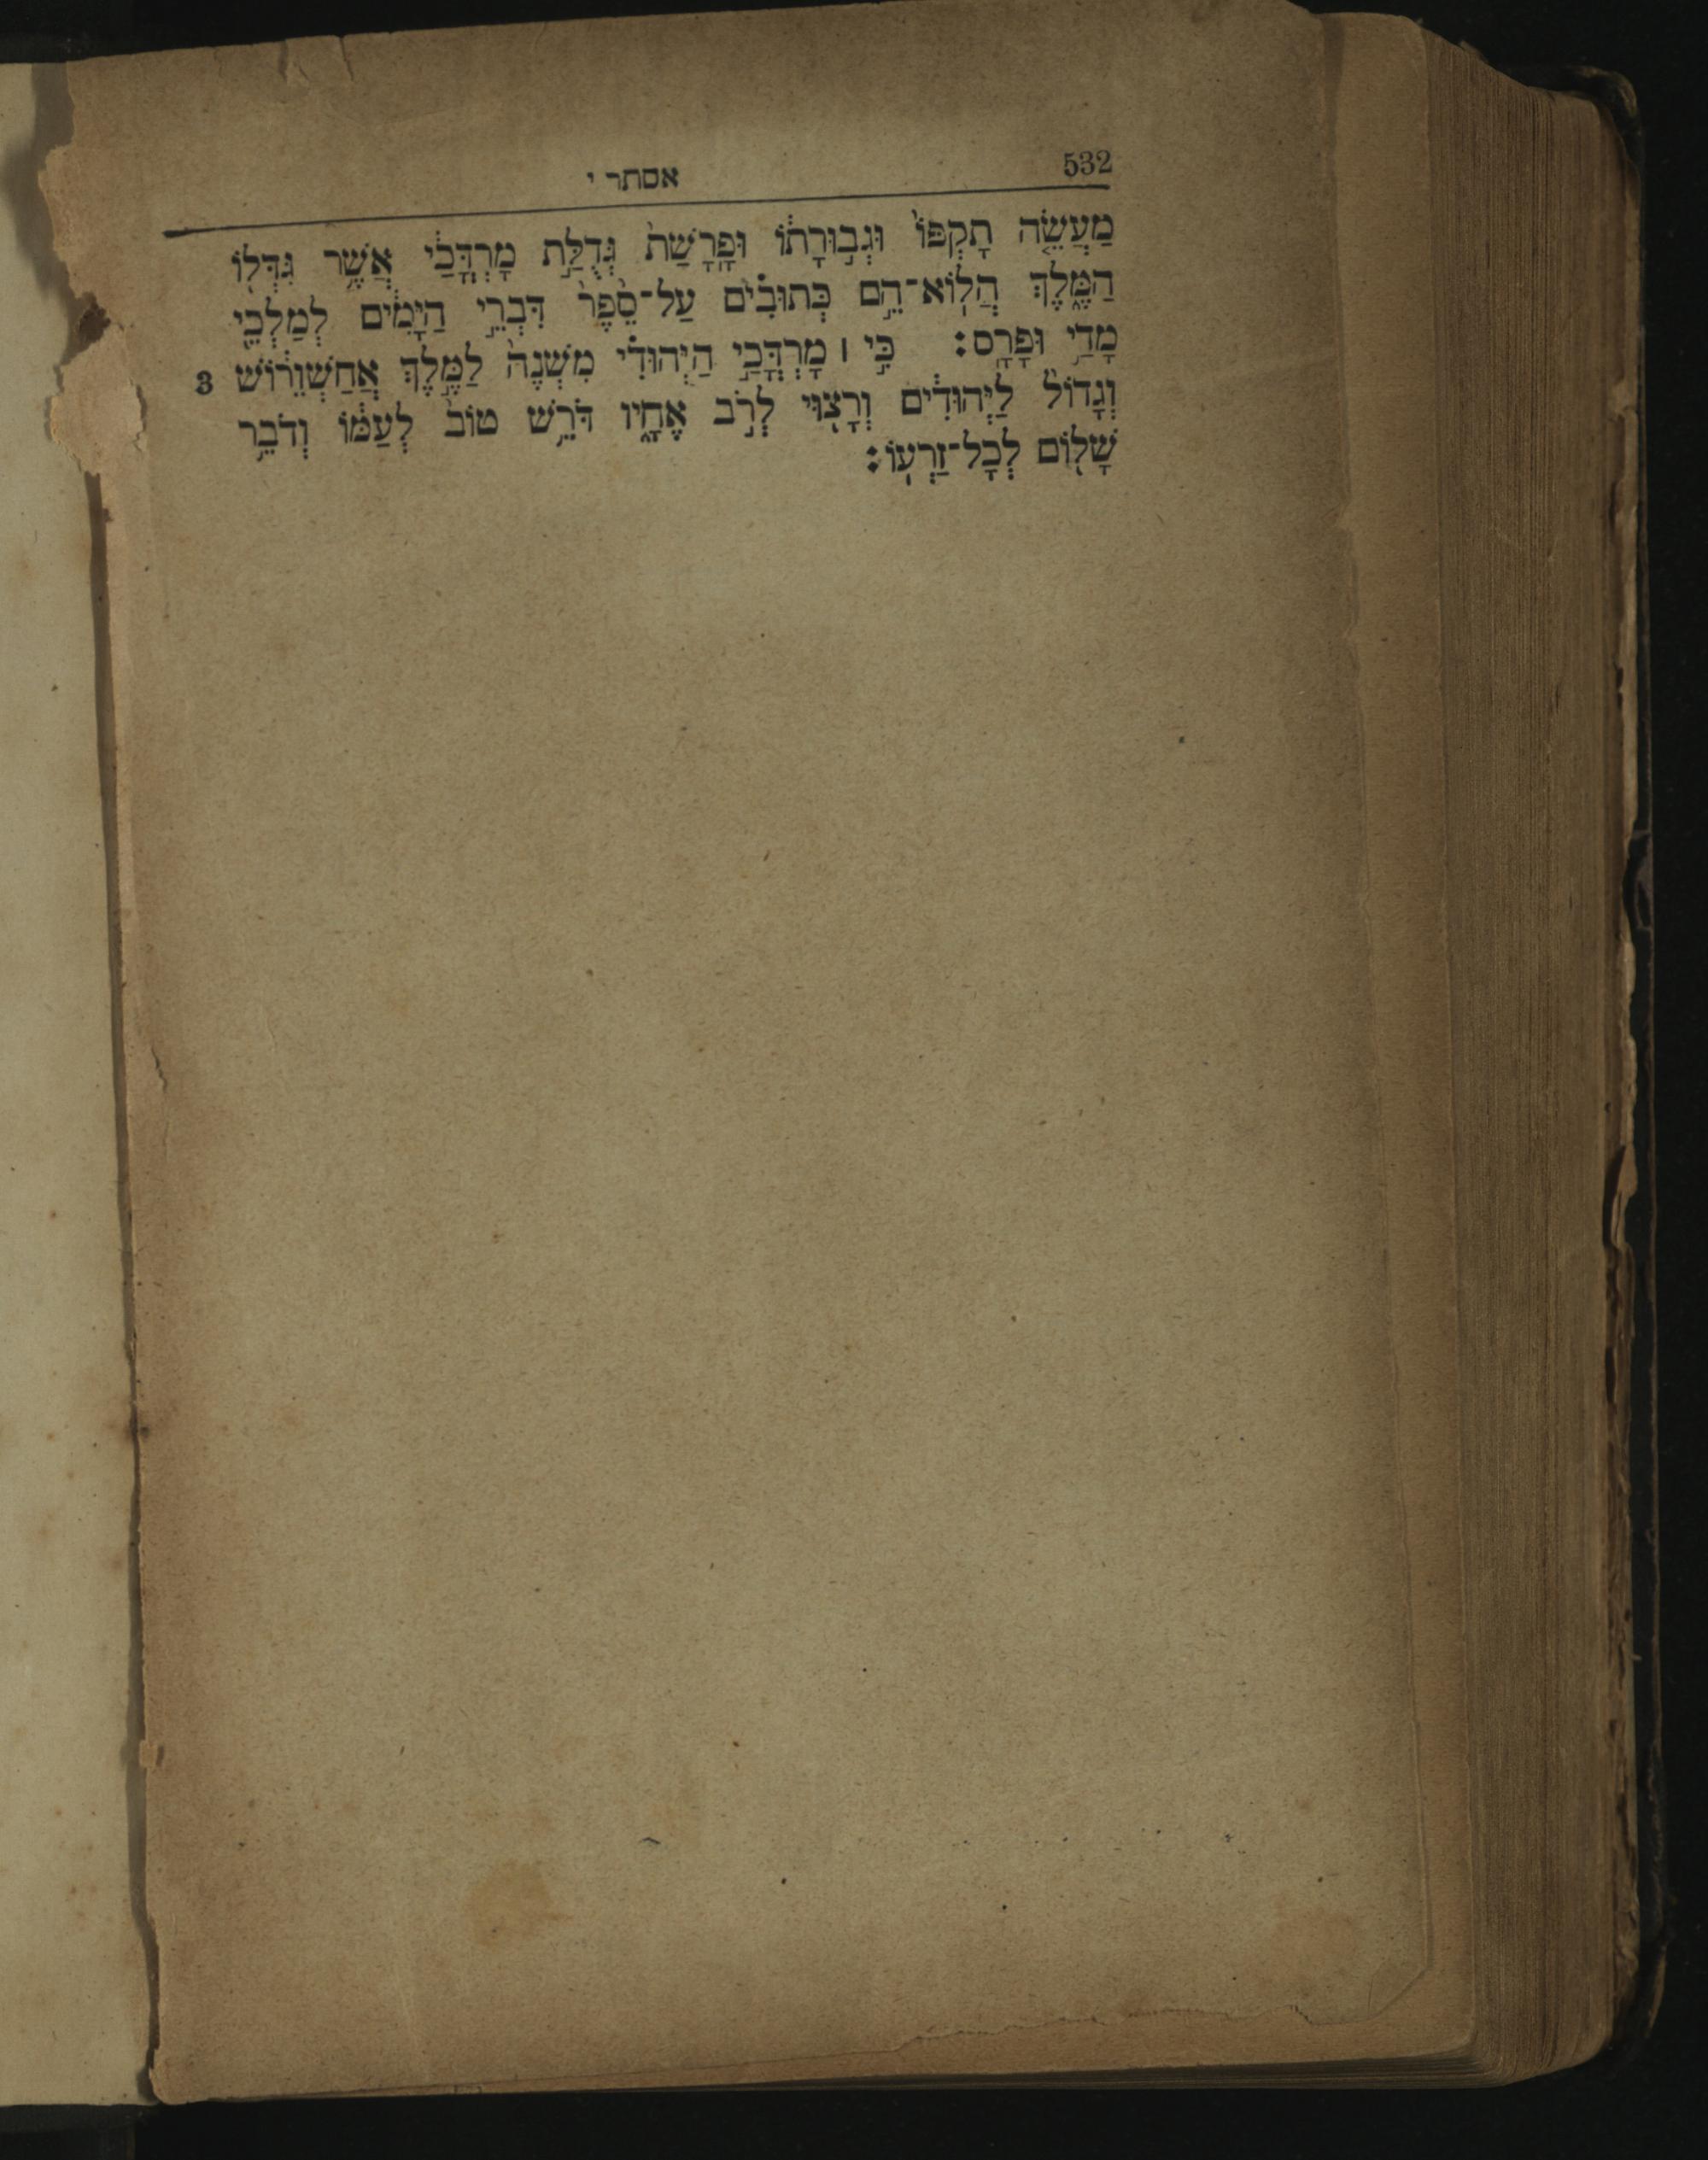 532
אסתר י
מַעֲשֵׂ֤ה תָקְפּוֹ֙ וּגְב֣וּרָת֔וֹ וּפָֽרָשַׁת֙ גְּדֻלַּ֣ת מָרְדֳּכַ֔י אֲשֶׁ֥ר גִּדְּל֖וֹ
הַמֶּ֑לֶךְ הֲלֽוֹא־הֵ֣ם כְּתוּבִ֗ים עַל־סֵ֙פֶר֙ דִּבְרֵ֣י הַיָּמִ֔ים לְמַלְכֵ֖י
מָדַ֥י וּפָרָֽס׃ כִּ֣י ׀ מָרְדֳּכַ֣י הַיְּהוּדִ֗י מִשְׁנֶה֙ לַמֶּ֣לֶךְ אֲחַשְׁוֵר֔וֹשׁ 3
וְגָדוֹל֙ לַיְּהוּדִ֔ים וְרָצ֖וּי לְרֹ֣ב אֶחָ֑יו דֹּרֵ֥שׁ טוֹב֙ לְעַמּ֔וֹ וְדֹבֵ֥ר
שָׁל֖וֹם לְכָל־זַרְעֽוֹ׃